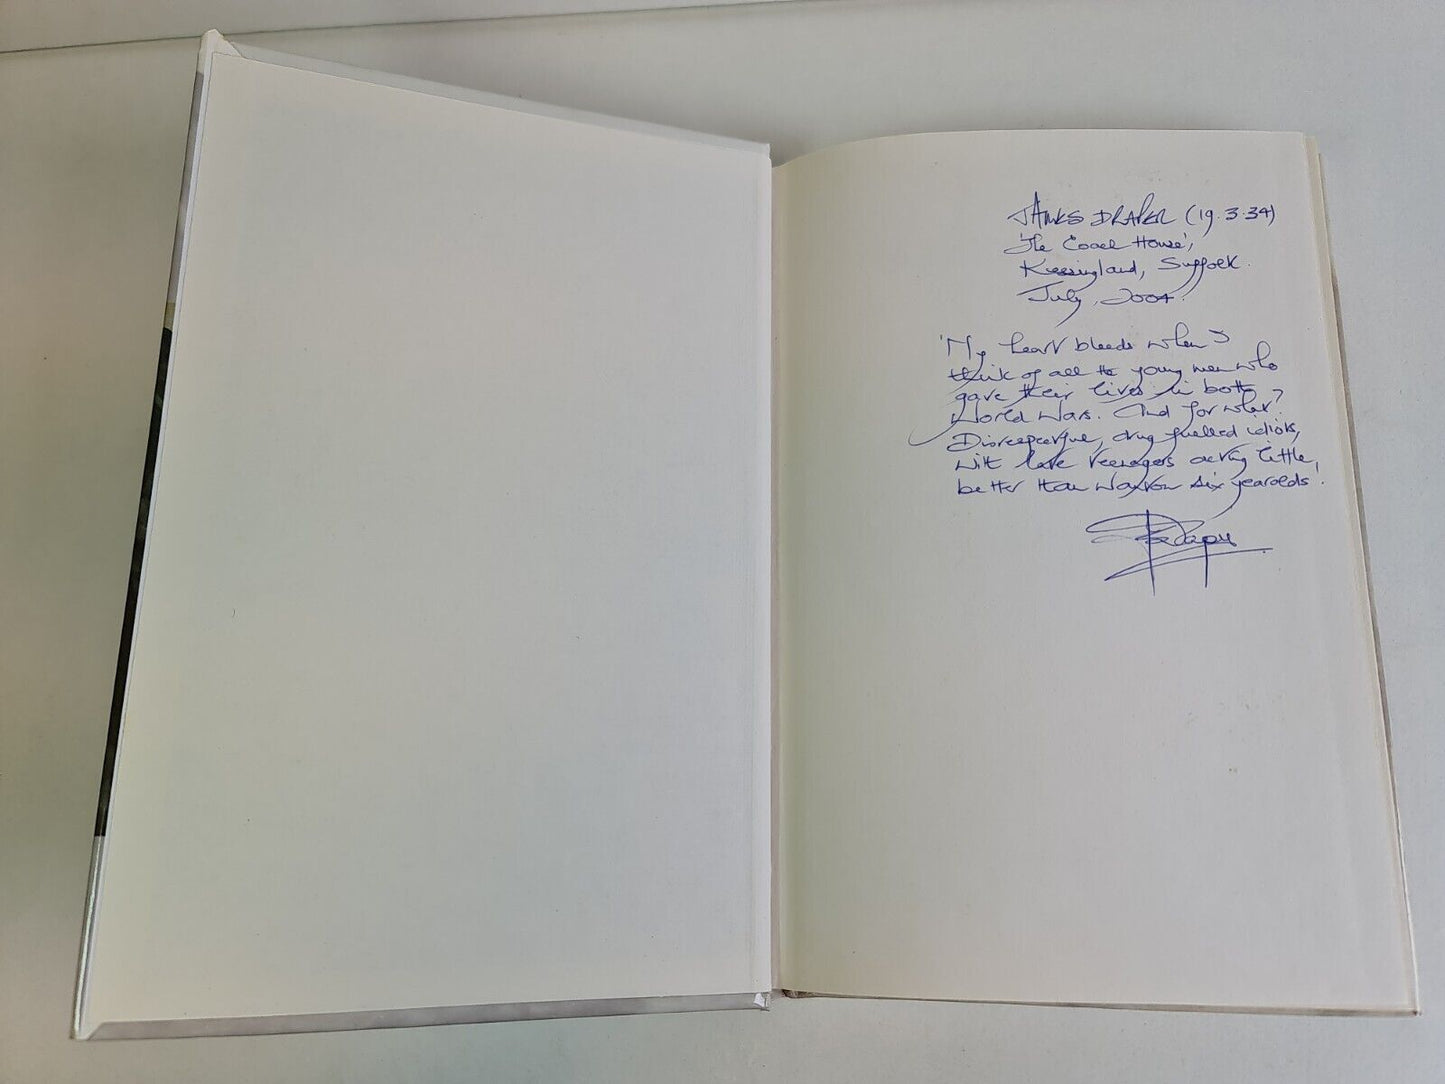 JAMES DRAPER (19.3.34)
'The Coach House',
Kessingland, Suffolk.
July, 2004.
'My heart bleeds when I
think of all the young men who
gave their lives in both
World Wars. And for what?
Disrespectful, drug fuelled idiots,
with late teenagers acting little,
better than wanton six year olds'.